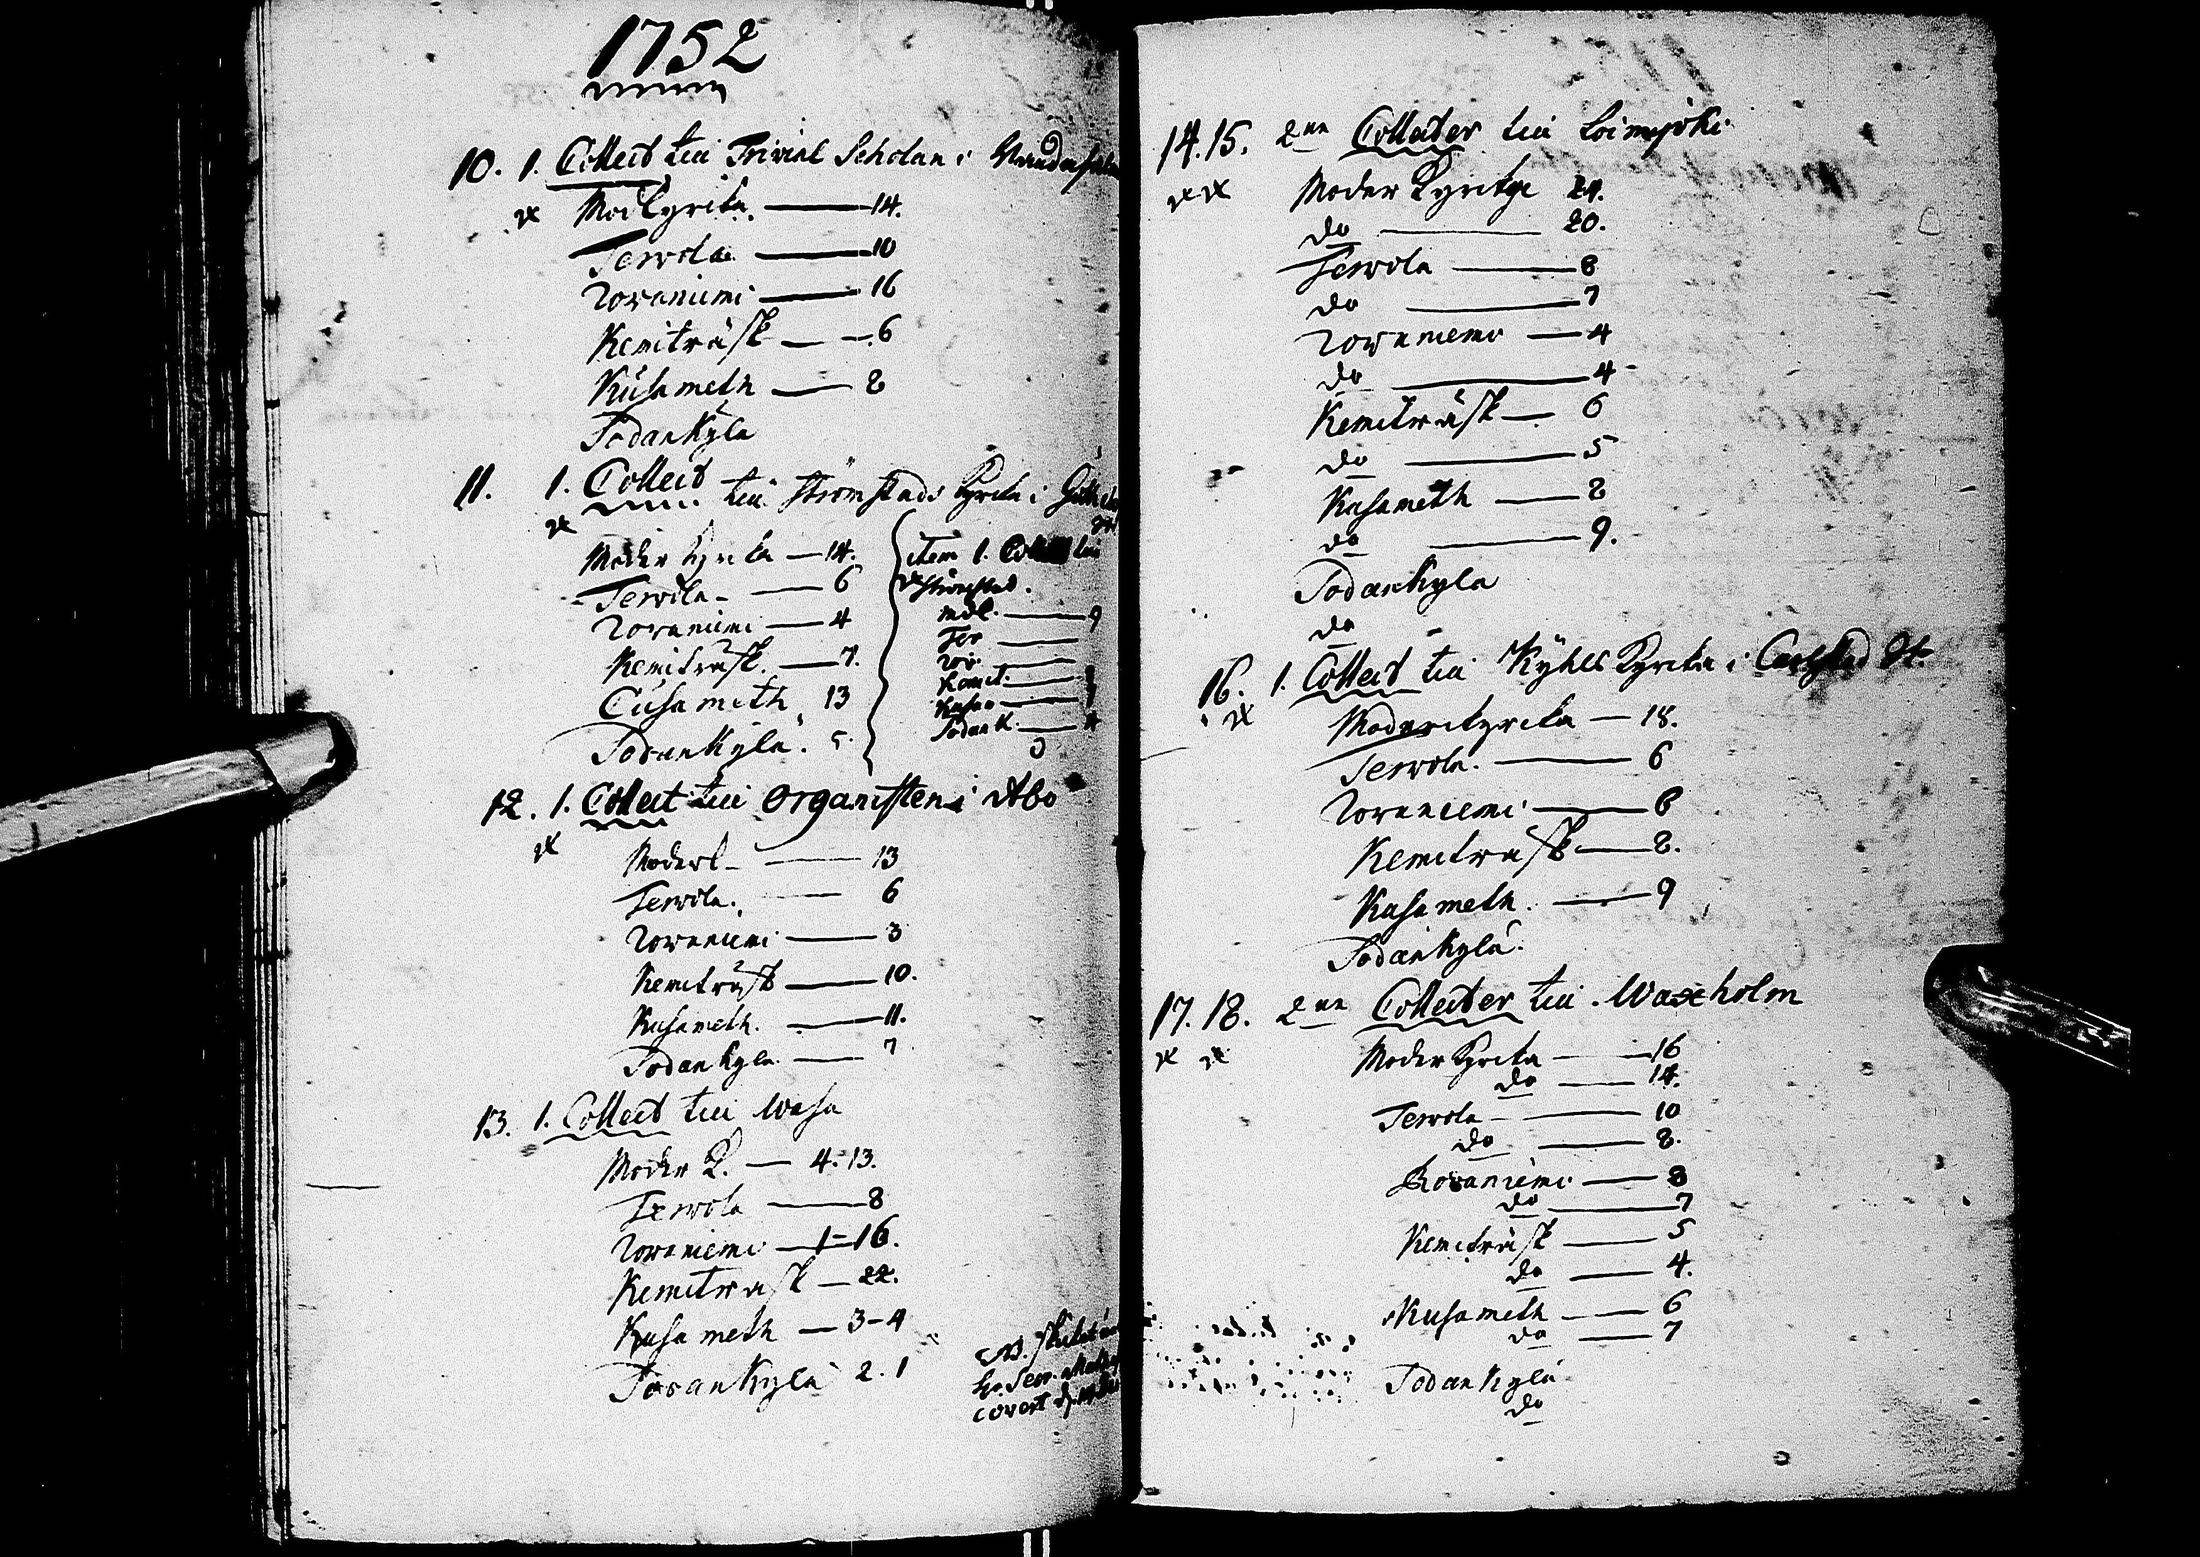 1752
10. 1. Collect till Trivial Scholan i
Mod Kyrcka. 14.
Terwola 10
Rovaniemi 16
Kemiträsk 6
Kusameth 8
Sodankyla
11. 1. Collect till Strömstads Kyrcka i
Moder Kyrcka 14.
Terwola 6
Rovaniemi 4
Kemiträsk. 7.
Cusameth 13
Sodankylä. 5.
item 1. Collect till
Strömstad.
Mdk. 9
Ter.
Rov.
Kemit.
Kusam
Sodank. 4
12. 1. Collect till Organisten i Abo
Moderk 13
Terwola. 6
Rovaniemi 3
Kemiträsk 10.
Kusameth. 11.
Sodankyla 7
13. 1. Collect till Wasa
Moder K. 4. 13.
Terwola 8
Rovaniemi 1-16.
Kemitrask 22.
Kusameth 3-4
Sodankyla 2. 1
NB.
14. 15. 2ne Collecter till Loimijoki
Moder Kyrckja 24.
do 20.
Terwola 8
do 7
Rowaniemi 4
do 4
Kemiträsk 6
do 5
Kusameth 8
do 9.
Sodankyla
do
16. 1. Collect till Kyhls Kyrcka i Carlstad St.
Moderckyrcka 18.
Terwola. 6
Rovaniemi 6
Kemitrask 8.
Kusameth. 9
Sodankylä.
17. 18. 2ne Collecter till Waxholm
Moder Kyrcka 16
do 14.
Terwola 10
do 8.
Rovaniemi 8
do 7
Kemiträsk 5
do 4.
Kusameth 6
do 7
Sodankylä
do